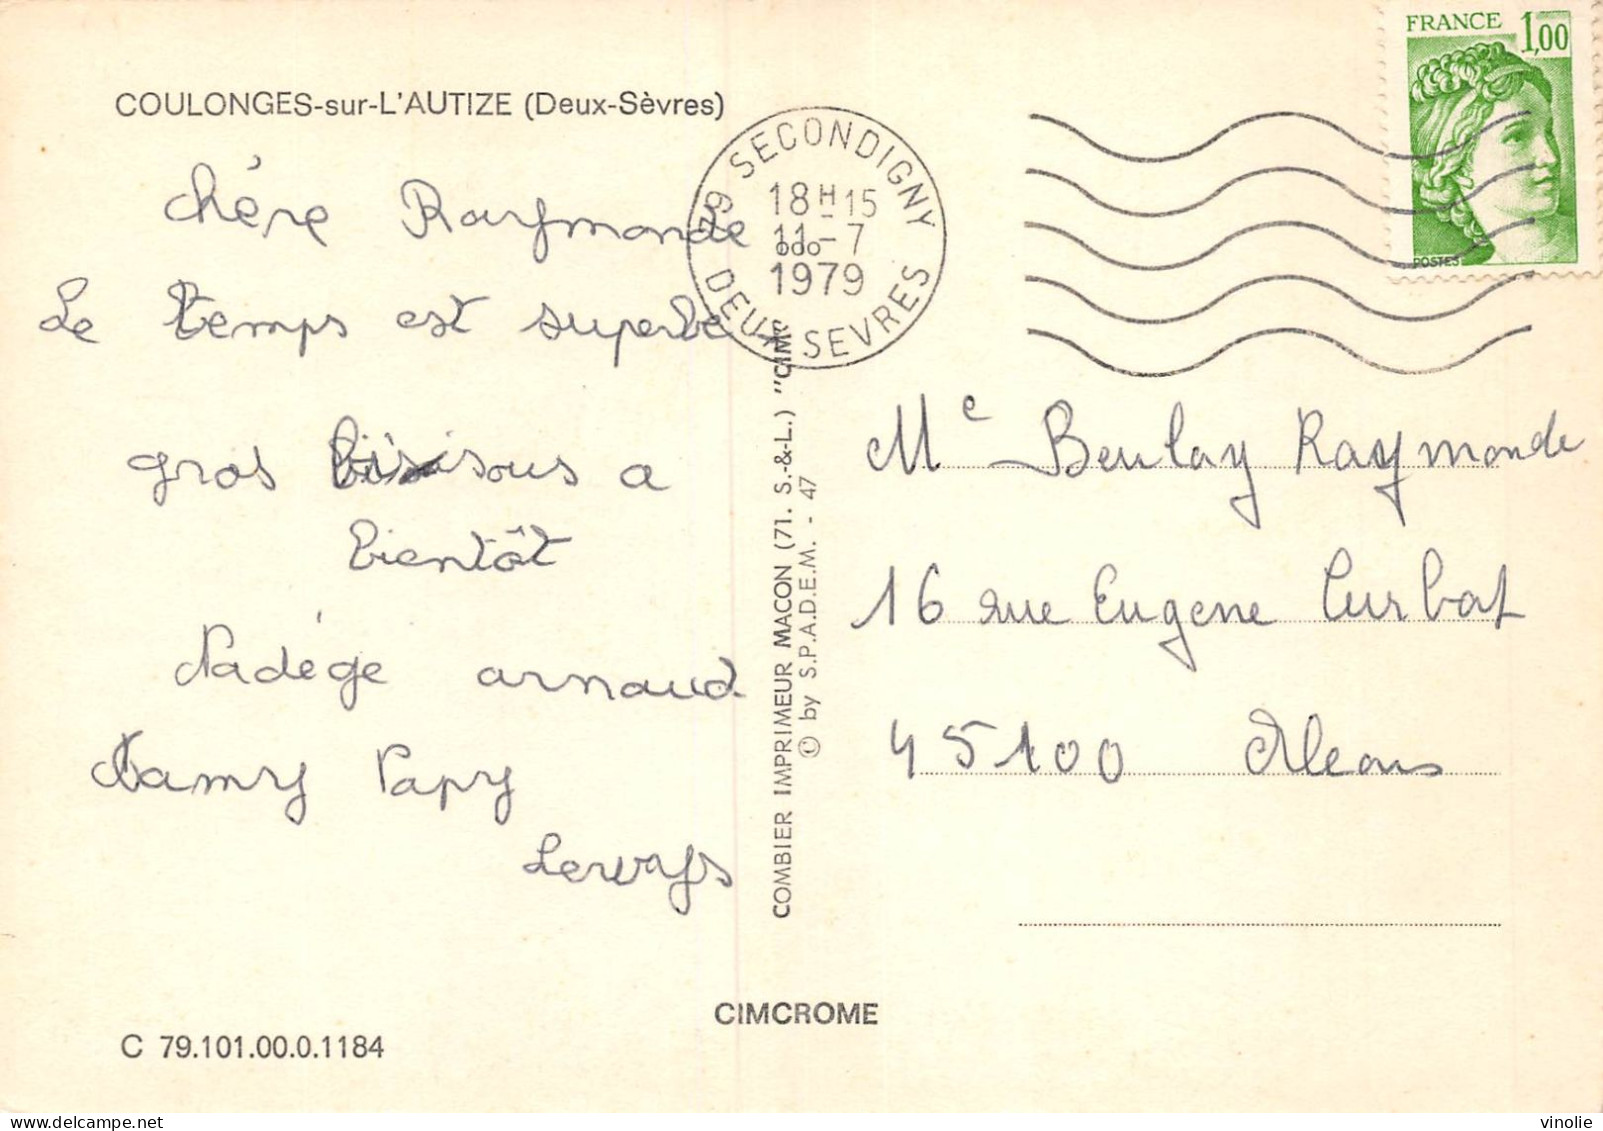 FRANCE 1,00
POSTES
COULONGES-sur-L'AUTIZE (Deux-Sèvres)
79 SECONDIGNY
18H15
11-7
1979
DEUX SEVRES
chére Raymonde
Le temps est superbe
gros bisous a
bientôt
Nadége arnaud
Mamy Papy
COMBIER IMPRIMEUR MACON (71. S.-&-L.) "CIM"
© by S.P.A.D.E.M. - 47
Me Beulay Raymonde
16 rue Eugene Turbat
45100 Orleans
CIMCROME
C 79.101.00.0.1184
vinolie